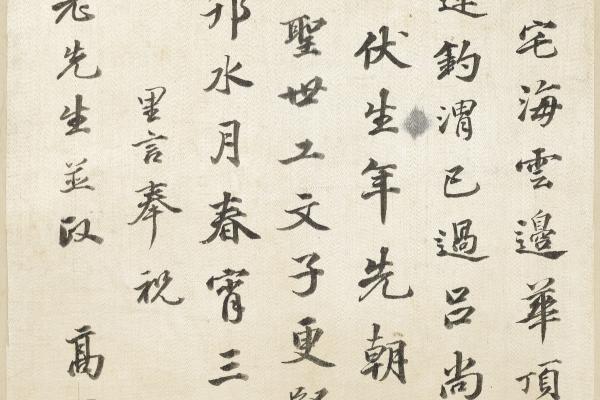 宅海雲邊華頂
釣渭已過呂尚
伏生年先朝
聖世工文子更
水月春宵三
里言奉祝
老先生並政 高